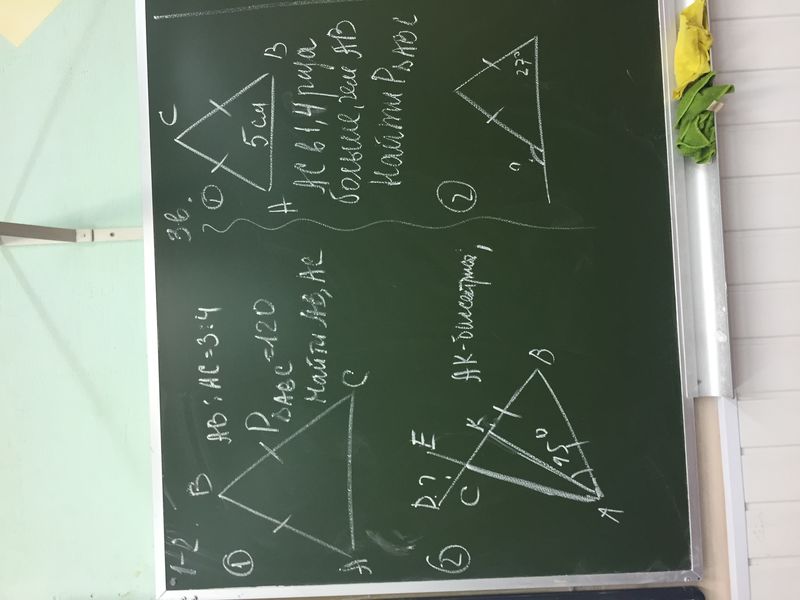 1-2.
①
B
A
C
AB : AC = 3:4
P△ABC = 120
Найти AB, AC
②
D ?
E
C
K
B
A
15°
AK - биссектриса,
3в.
①
C
A
B
5 см
AC в 1,4 раза
больше, чем AB
Найти P△ABC
②
?
27°